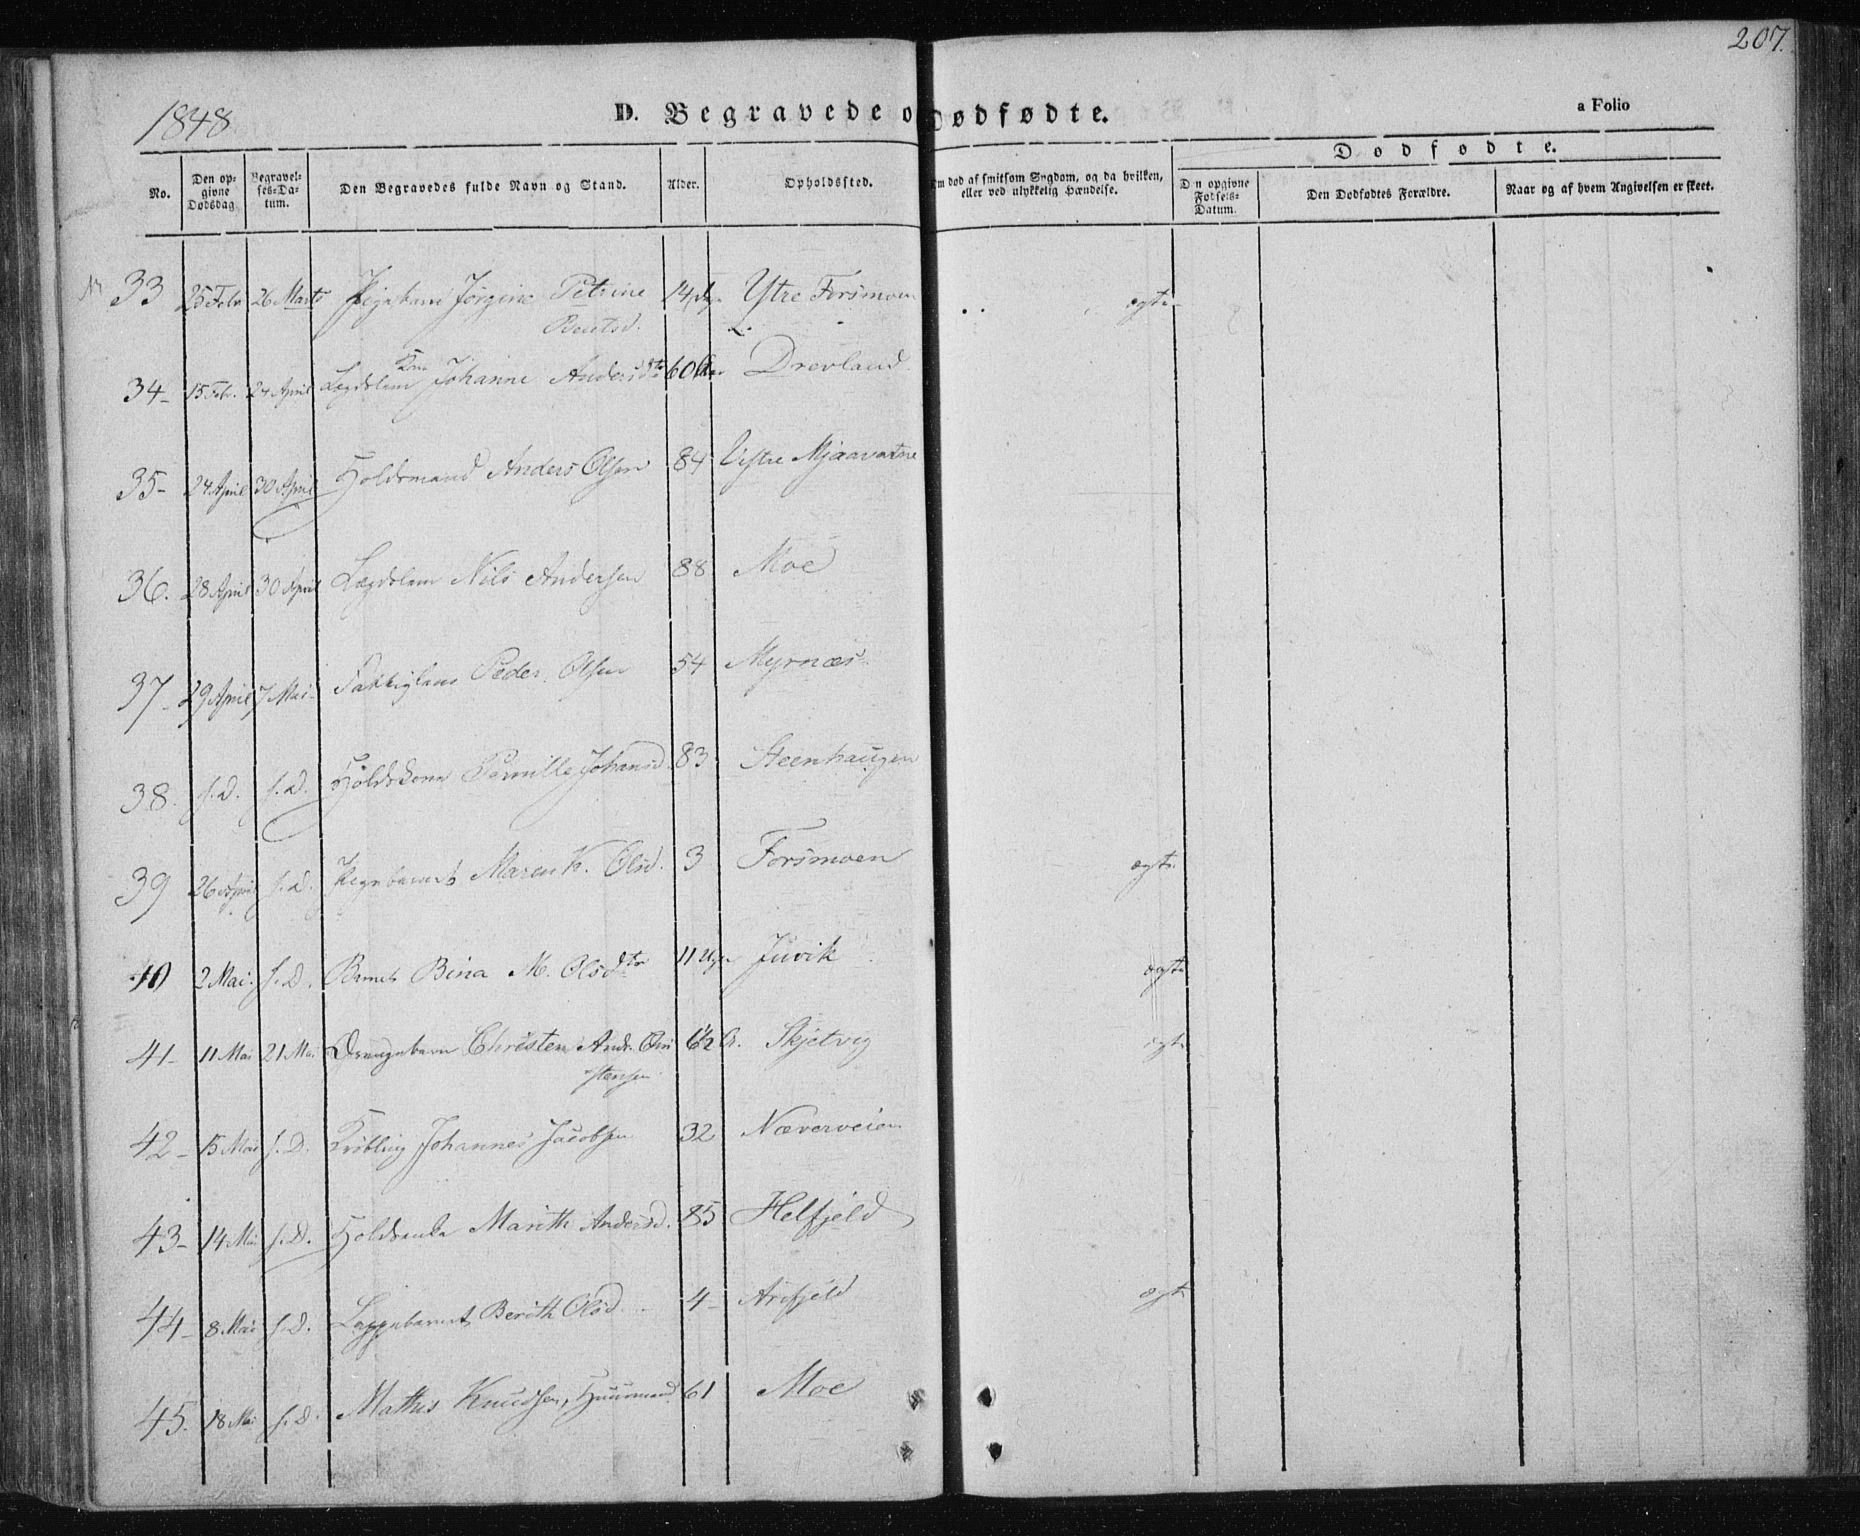 207.
1848
D. Begravede o Dødfødte.
a Folio
Dødfødte.
No.
Den op-
givne
Dødsdag
Begravel-
ses-Da-
tum.
Den Begravedes fulde Navn og Stand.
Alder.
Opholdssted.
Om død af smitsom Sygdom, og da hvilken,
eller ved ulykkelig Hændelse.
D n opgivne
Fødsels-
Datum.
Den Dødfødtes Forældre.
Naar og af hvem Angivelsen er skeet.
33 25 Febr 26 Marts Pigebarn Jørgine Petrine 14 Ytre Forsmoen ægte
Bentsd.
Kone
34- 15 Febr. 24 April Lægdslem Johanne Andersdtr 60 Aar Drevland
35- 24 April 30 April Holdsmand Anders Olsen 84 Vestre Mjaavatne
36. 28 April 30 April Lægdslem Nils Andersen 88 Moe
37- 29 April 7 Mai- Peder Olsen 54 Myrnæs
38. s.D. s.D. Holdskone Pernille Johansd. 83 Steenhaugen
39 26 April s.D. Pigebarnet Maren K. Olsd. 3 Forsmoen ægte
40 2 Mai. s.D. Barnet Bina M. Olsdtr 11 Uger Juvik ægte
41- 11 Mai 21 Mai Drengebarn Christen Andr. Chri 6½ A. Skjetvig ægt
stensen
42- 15 Mai s.D. Krøbling Johannes Jacobsen 32 Næverveien
43- 14 Mai s.D. Holdsenke Marith Andersd. 85 Helfjeld
44- 8 Mai s.D. Lappebarnet Berith Olsd. 4- Arefjeld ægt
45. 18 Mai s.D. Mathis Knudsen, Huusmand 61 Moe